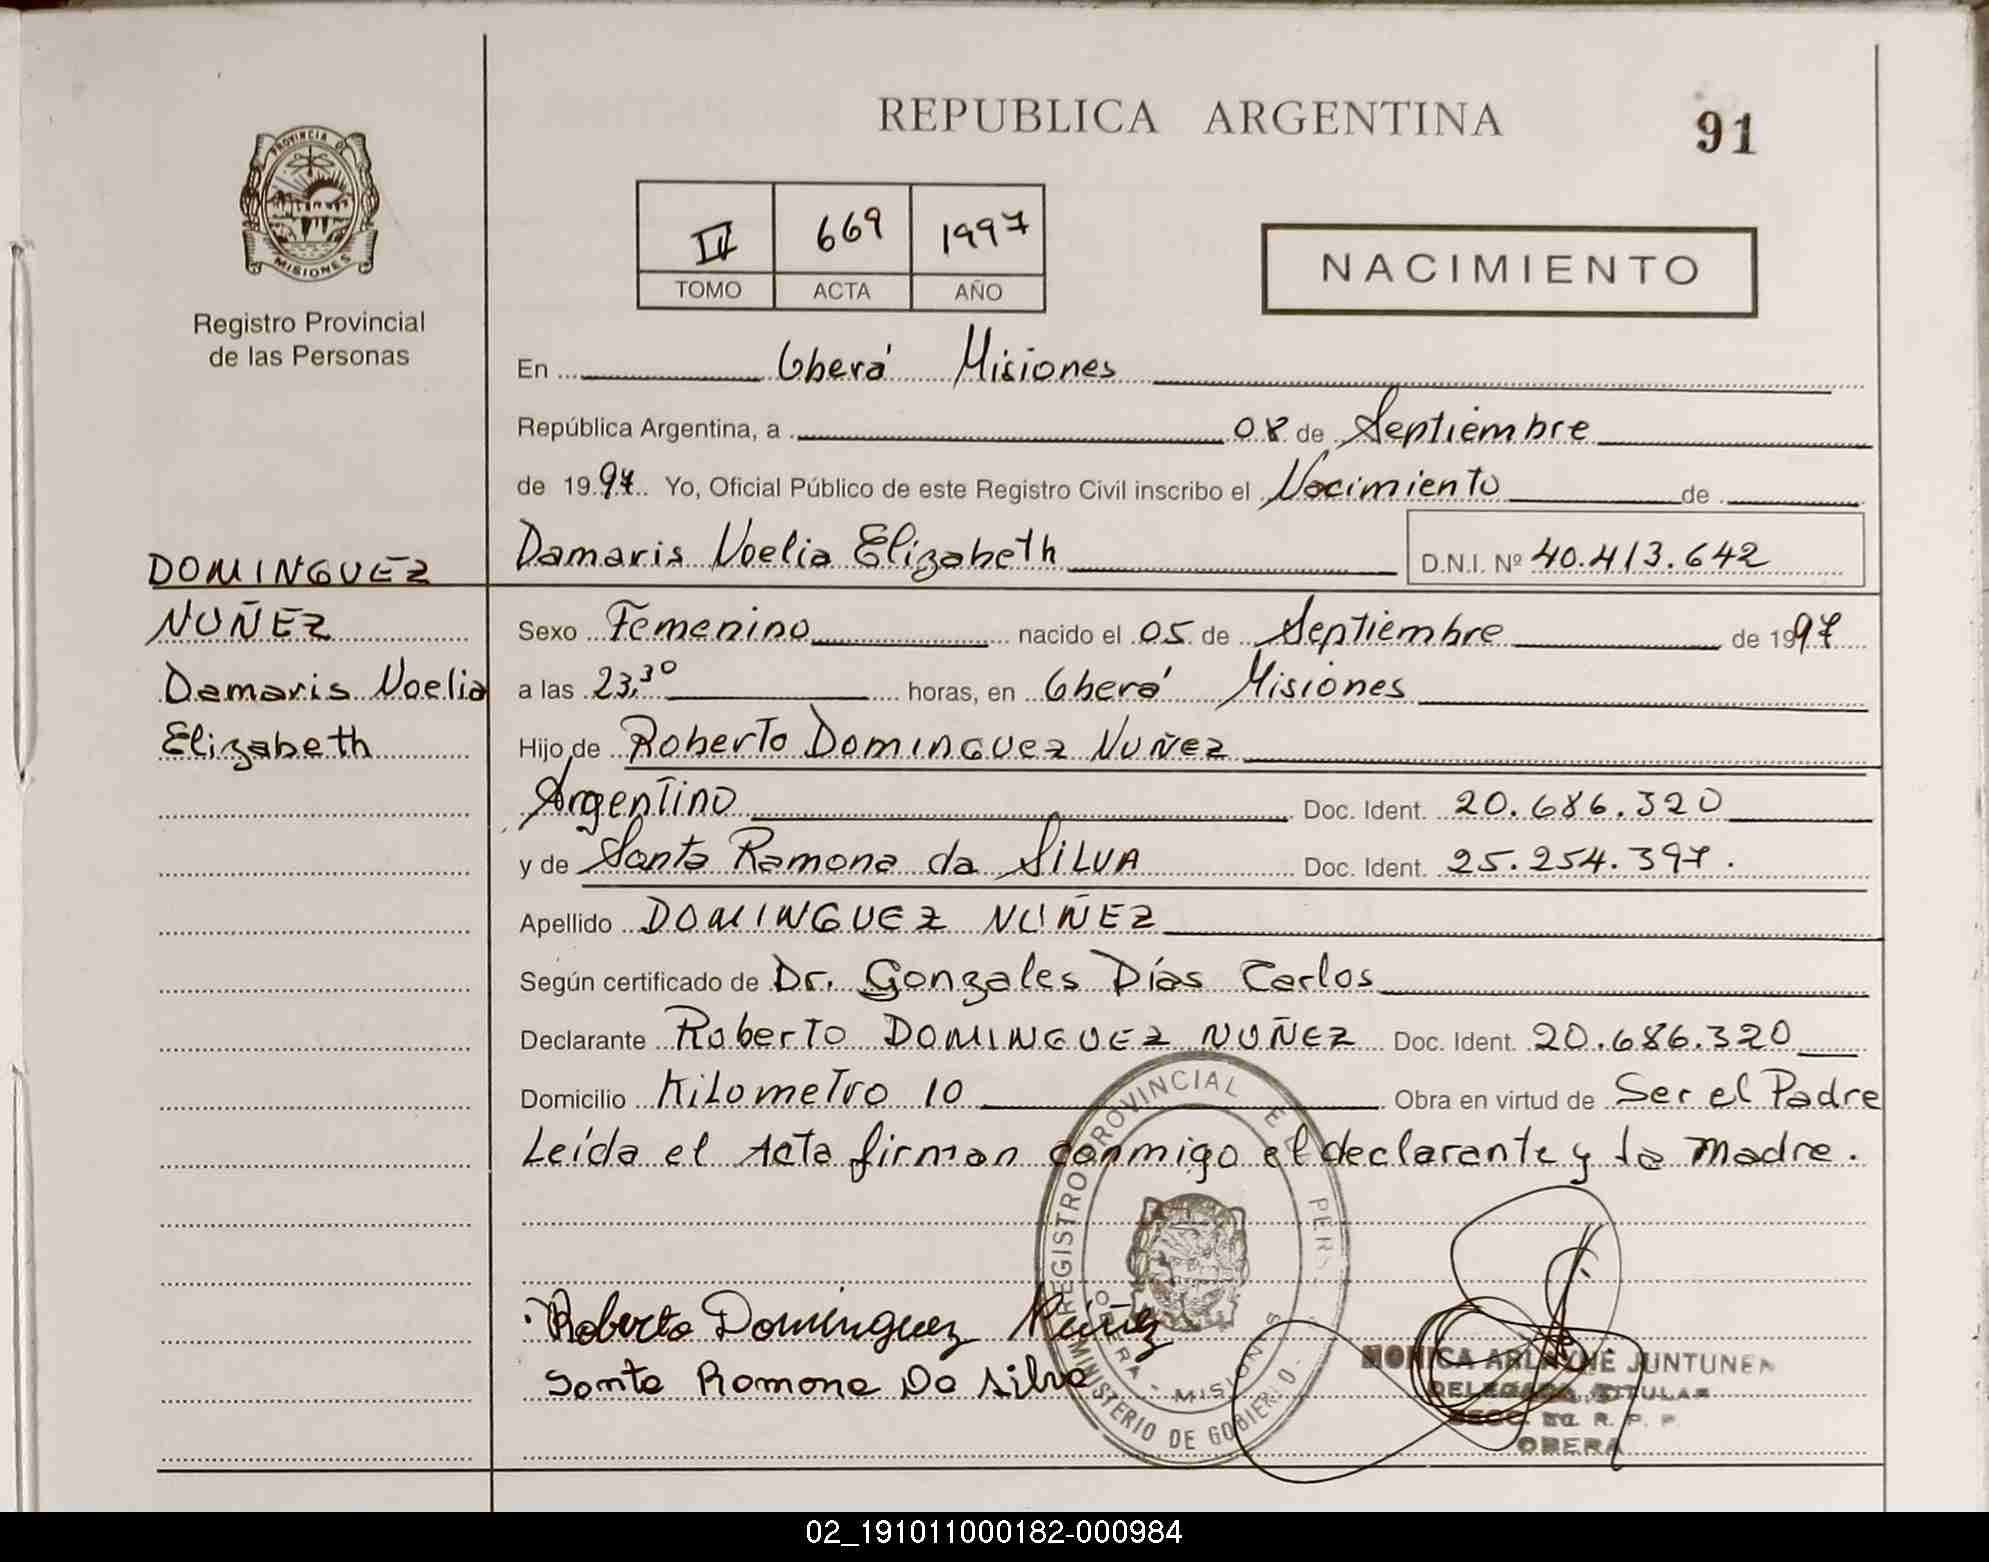 REPUBLICA ARGENTINA
91
PROVINCIA DE
MISIONES
Registro Provincial
de las Personas
669 1997
TOMO ACTA AÑO
NACIMIENTO
En Oberá Misiones
República Argentina, a 08 de Septiembre
de 1997 Yo, Oficial Público de este Registro Civil inscribo el Nacimiento de
Damaris Noelia Elizabeth D.N.I. Nº 40.413.642
DOMINGUEZ
NUÑEZ
Damaris Noelia
Elizabeth
Sexo Femenino nacido el 05 de Septiembre de 1997
a las 23,30 horas, en Oberá Misiones
Hijo de Roberto Dominguez Nuñez
Argentino Doc. Ident. 20.686.320
y de Santa Ramona da SILVA Doc. Ident. 25.254.397.
Apellido DOMINGUEZ NUÑEZ
Según certificado de Dr. Gonzales Días Carlos
Declarante Roberto DOMINGUEZ NUÑEZ Doc. Ident. 20.686.320
Domicilio Kilometro 10 Obra en virtud de Ser el Padre
Leída el Acta firman conmigo el declarante y la madre.
REGISTRO PROVINCIAL
OBERA - MISIONES
MINISTERIO DE GOBIERNO
Roberto Dominguez Núñez
Santa Ramona Da Silva
MONICA ARLAYNE JUNTUNEN
DELEGADA TITULAR
SECC. R. P. P.
OBERA
02_191011000182-000984